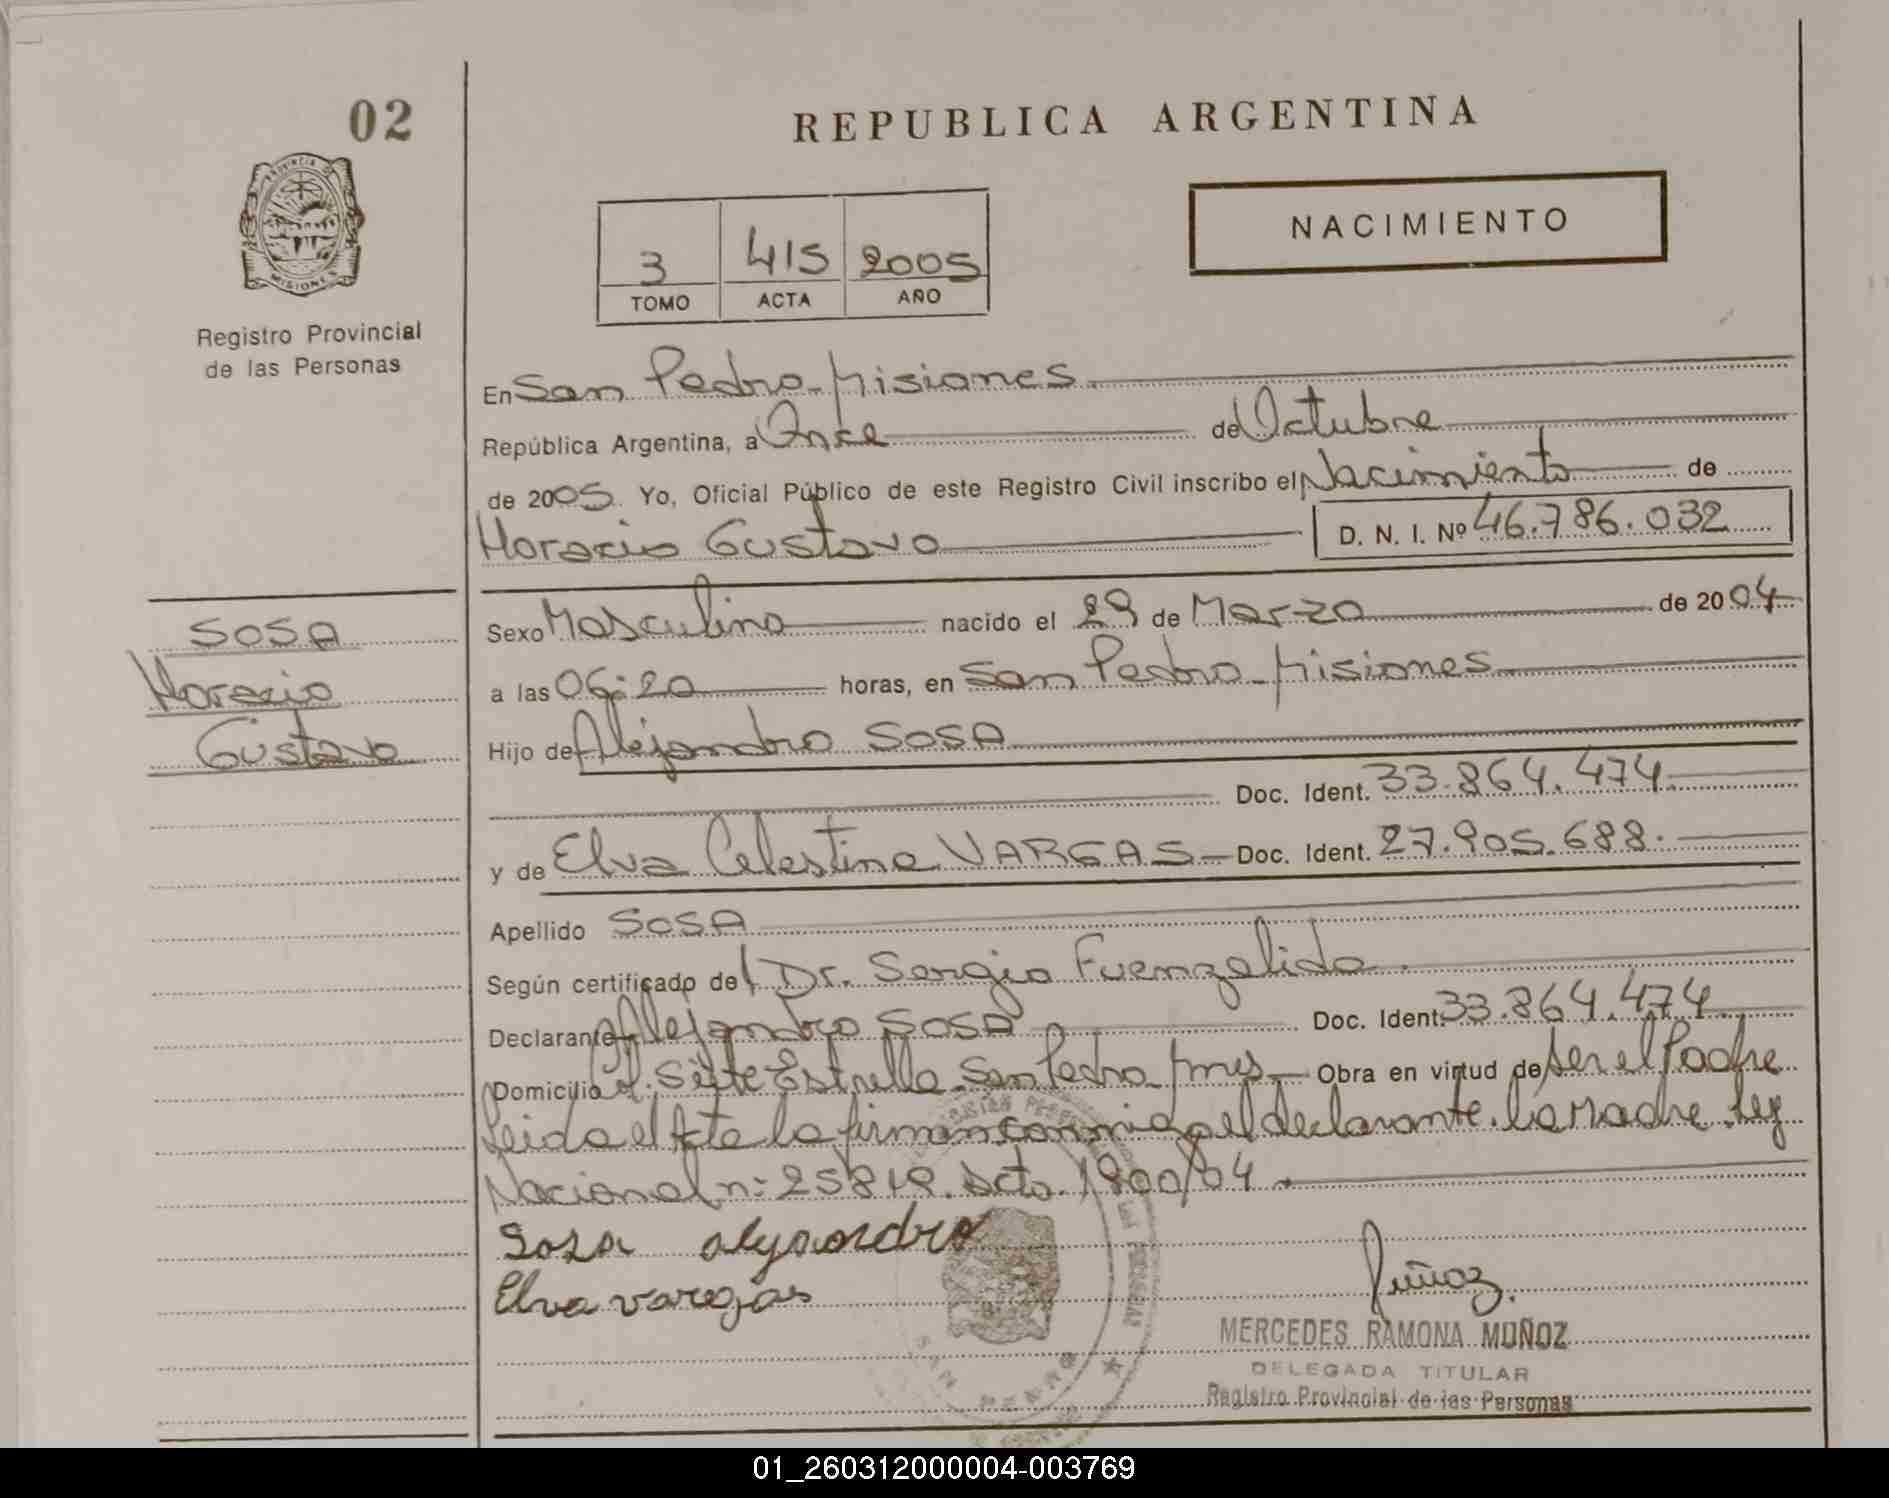 02
REPUBLICA ARGENTINA
PROVINCIA DE
MISIONES
NACIMIENTO
3 415 2005
TOMO ACTA AÑO
Registro Provincial
de las Personas
En San Pedro-Misiones
República Argentina, a Once de Octubre
de 2005. Yo, Oficial Público de este Registro Civil inscribo el Nacimiento de
Horacio Gustavo D. N. I. Nº 46.786.032
SOSA
Horacio
Gustavo
Sexo Masculino nacido el 29 de Marzo de 2004
a las 06:20 horas, en San Pedro-Misiones
Hijo de Alejandro SOSA
Doc. Ident. 33.864.474.
y de Elva Celestina VARGAS Doc. Ident. 27.905.688.
Apellido SOSA
Según certificado del Dr. Sergio Fuenzalida.
Declarante Alejandro SOSA Doc. Ident. 33.864.474
Domicilio Siete Estrella-San Pedro-Mnes Obra en virtud de ser el Padre
Leida el Acta la firman conmigo el declarante. la Madre. Ley
Nacional n: 25819. Dcto. 1800/04.
Sosa alejandro
Elva varegas
Muñoz.
MERCEDES RAMONA MUÑOZ
DELEGADA TITULAR
Registro Provincial de las Personas
SAN PEDRO
01_260312000004-003769